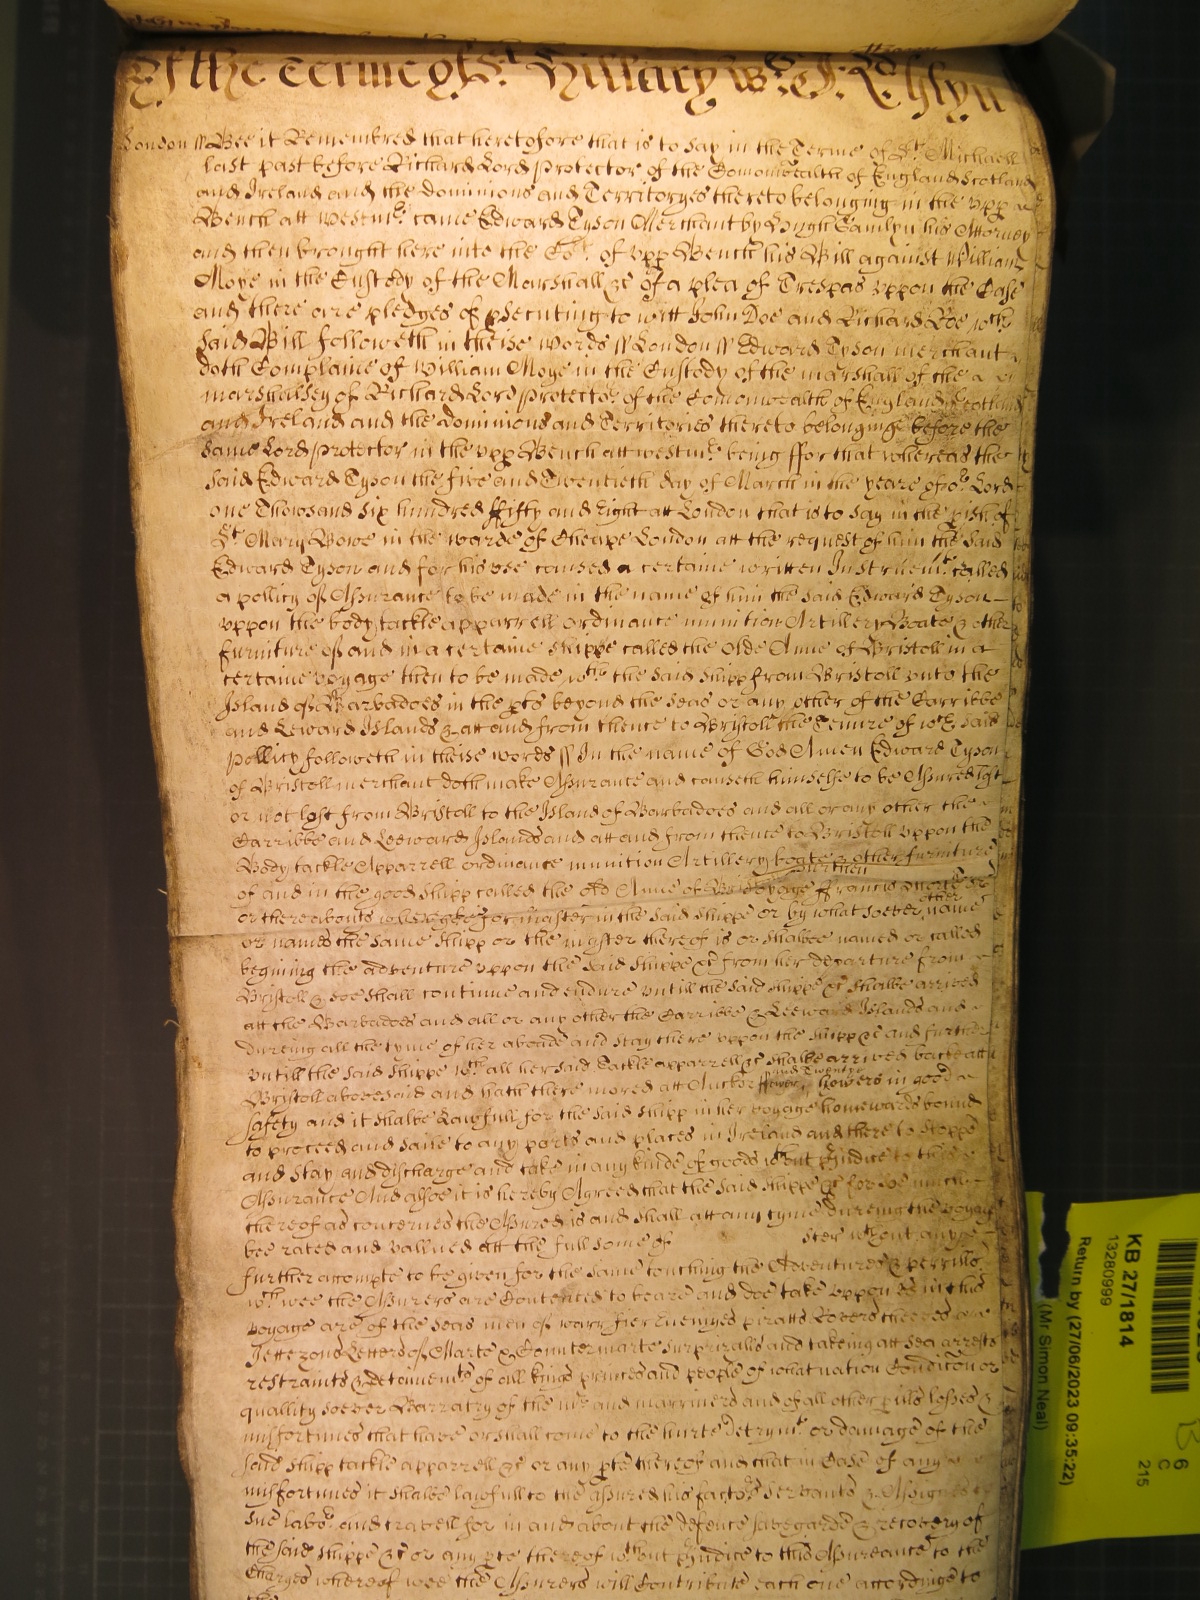 Of the Terme of St Hillary
London // Bee it Remembred that heretofore that is to say in the Terme of St Michaell
last past before Richard Lord Protector of the Comonwealth of England Scotland
and Ireland and the dominions and Territoryes thereto belonging in the upp
Bench att Westmr came Edward Tyson Merchant by Hugh Hamlyn his Attorney
and then brought here into the Cot of upp Bench his Bill against William
Moye in the Custody of the Marshall &c of a plea of Trespas uppon the Case
and there are pledges of psecuting to witt John Doe and Richard Roe wch
said Bill followeth in theise words // London // Edward Tyson merchant
doth Complaine of William Moye in the Custody of the marshall of the
marshallsey of Richard Lord Protector of the Comonwealth of England Scotland
and Ireland and the Dominions and Territories thereto belonginge before the
same Lord Protector in the upp Bench att Westmr being ffor that whereas the
said Edward Tyson the five and Twentieth day of March in the yeare of or Lord
one Thowsand six hundred ffifty and Eight att London that is to say in the pish of
St Mary Bowe in the warde of Cheape London att the request of him the said
Edward Tyson and for his use caused a certaine written Instruemt called
a pollicy of Assurance to be made in the name of him the said Edward Tyson
uppon the body tackle apparrell ordinance munition Artillery Boate & other
furniture of and in a certaine shippe called the Olde Anne of Bristoll in a
certaine voyage then to be made wth the said shipp from Bristoll unto the
Island of Barbadoes in the pts beyond the seas or any other of the Carribbe
and Leward Islands & att and from thence to Bristoll the Tenure of wch said
pollicy followeth in theise words // In the name of God Amen Edward Tyson
of Bristoll merchant doth make Assurance and causeth himselfe to be Assured lost
or not lost from Bristoll to the Island of Barbadoes and all or any other the
Carribbe and Leeward Islands and att and from thence to Bristoll uppon the
Body tackle Apparrell ordinance munition Artillery boate & other furniture
of and in the good shipp called the old Anne of voyage Francis
or thereabouts for master in the said shippe or by what soever other name
or names the same shipp or the master thereof is or shalbee named or called
begining the adventure uppon the said shippe &c from her departure from
Bristoll & soe shall continue and endure untill the said shippe &c shalbe arrived
att the Barbadoes and all or any other the Carribbe & Leeward Islands and
dureing all the tyme of her aboade and stay there uppon the shipp &c and further
untill the said shippe wth all her said tackle apparrell &c shalbe arrived backe att
Bristoll abovesaid and hath there mored att Anchor and Twenty howers in good
safety and it shalbe Lawfull for the said shipp in her voyage homewards bound
to proceed and saile to any ports and places in Ireland and there to stoppe
and stay and discharge and take in any kinde of goods wthout pjudice to this
Assurance And alsoe it is hereby Agreed that the said shippe &c for soe much
thereof as concernes the Assured is and shall att any tyme dureing the voyage
bee rated and vallued att the full some of ster wthout any
further accompte to be given for the same touching the Adventures & perrills
wch wee the Assurers are Contented to beare and doe take uppon us in this
voyage are of the seas men of warr fier Enemyes piratts Rovers theeves
Jettezons Letters of Marte & Countermarte surprizalls and takeing att sea arrests
restraints & detainemts of all kings princes and people of what nation Condicon or
quallity soever Barratry of the mr and marriners and of all other pills losses &
misfortunes that have or shall come to the hurte detrymt or damage of the
said shipp tackle apparrell &c or any pte thereof and that in Case of any
misfortunes it shalbe lawfull to the assured his factors servants & Assignes to
sue labor and travell for in and about the defence savegarde & recovery of
the said shippe &c or any pte thereof wthout pjudice to this Assureance to the
Charges whereof wee the Assurers will Contribute each one accordinge to
KB 27/1814
13280999
Return by (27/06/2023 09:35:22)
(Mr Simon Neal)
6
C
215